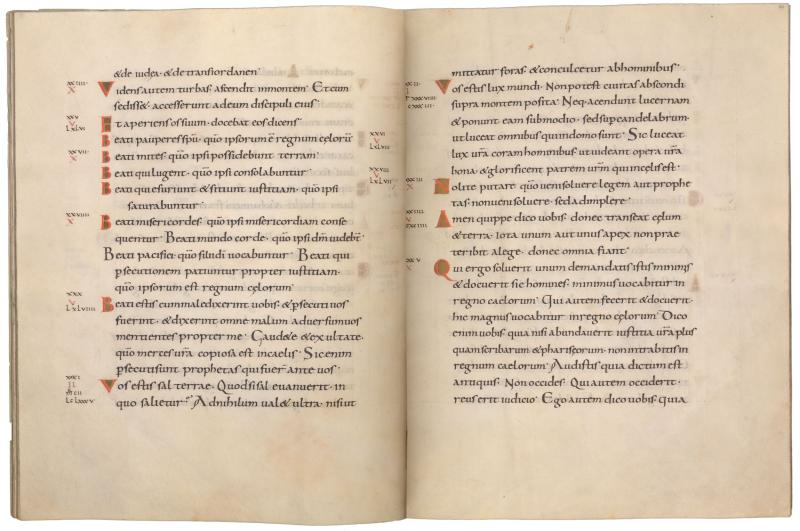 xxiiii
x
&de iudęa · &detransiordanen
Videns autem turbas · ascendit inmontem · Et cum
sediss& · accesserunt adeum discipuli eius ·
xxv
v
lxlvi
Et aperiens os suum · docebat eos dicens
Beati pauperes spū · quō ipsorum ē regnum cęlorū
xxvi
v
lxlvii
xxvii
x
Beati mites · quō ipsi possidebunt terram ·
Beati qui lugent · quō ipsi consolabuntur ·
xxviii
v
lxlvii
Beati qui esuriunt & sitiunt iustitiam · quō ipsi
saturabuntur ·
xxviiii
x
Beati misericordes · quō ipsi misericordiam conse
quentur · Beati mundo corde · quō ipsi dm̄ uidebt̄
Beati pacifici · quō filii dī uocabuntur · Beati qui
psecutionem patiuntur propter iustitiam ·
quō ipsorum est regnum cęlorum ·
xxx
v
lxlviiii
Beati estis cum maledixerint uobis · & psecuti uos
fuerint · & dixerint omne malum aduersum uos
mentientes propter me · Gaud&e & exultate ·
quō merces ur̄a copiosa est incaelis · Sic enim
psecuti sunt prophetas qui fuer̄ ante uos ·
xxxi
ii
mcii
Vos estis sal terrae · Quodsi sal euanuerit · in
quo salietur · Adnihilum ual& ultra · nisi ut
mittatur foras · & conculcetur abhominibus ·
Vos estis lux mundi · Non potest ciuitas abscondi
supra montem posita · Neq· acendunt lucernam
& ponunt eam submodio · sed supcandelabrum ·
ut luceat omnibus qui indomo sunt · Sic luceat
lux ur̄a coram hominibus · ut uideant opera ur̄a
bona · & glorificent patrem ur̄m qui incęlis est ·
xxxiii
x
Nolite putare quō ueni soluere legem aut prophe
tas · non ueni soluere · sed adimplere ·
xxxiiii
Amen quippe dico uobis · donec transeat cęlum
& terra · iota unum aut unus apex non prae
teribit a lege · donec omnia fiant ·
xxxv
x
Qui ergo soluerit unum demandatis istis minimis
& docuerit sic homines · minimus uocabitur in
regno caelorum · Qui autem fecerit & docuerit ·
hic magnus uocabitur inregno cęlorum · Dico
enim uobis quia nisi abundauerit iustitia ur̄a plus
quam scribarum & pharisęorum · non intrabitis in
regnum caelorum · Audistis quia dictum est
antiquis · Non occides · Qui autem occiderit ·
reus erit iudicio · Ego autem dico uobis · quia